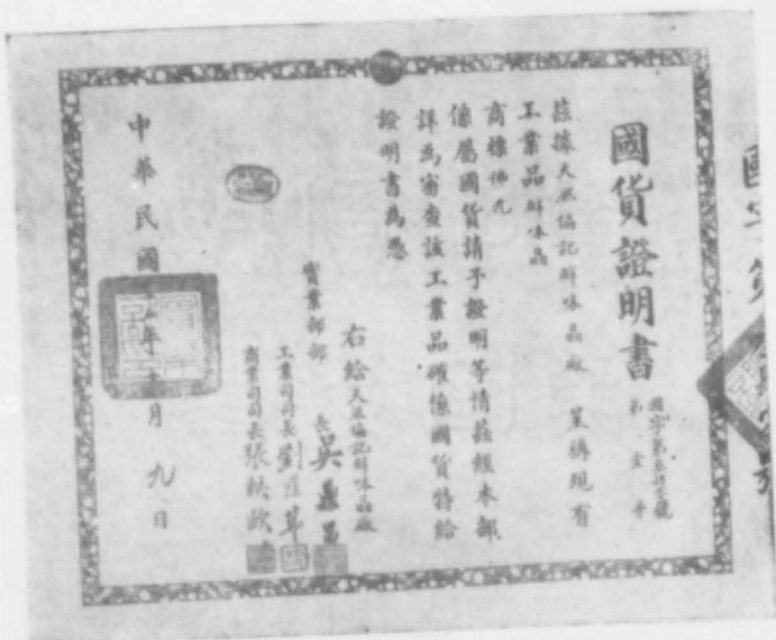 國貨證明書
國字第
第壹
茲據天然協記鮮味晶廠 呈稱現有
工業品鮮味晶
商標佛光
係屬國貨請予證明等情茲經本部
詳為審查該工業品確係國貨特給
證明書為憑
右給天然協記鮮味晶廠
實業部部長吳鼎昌
工業司司長劉蔭茀
商業司司長張軼歐
中華民國 年 月九日